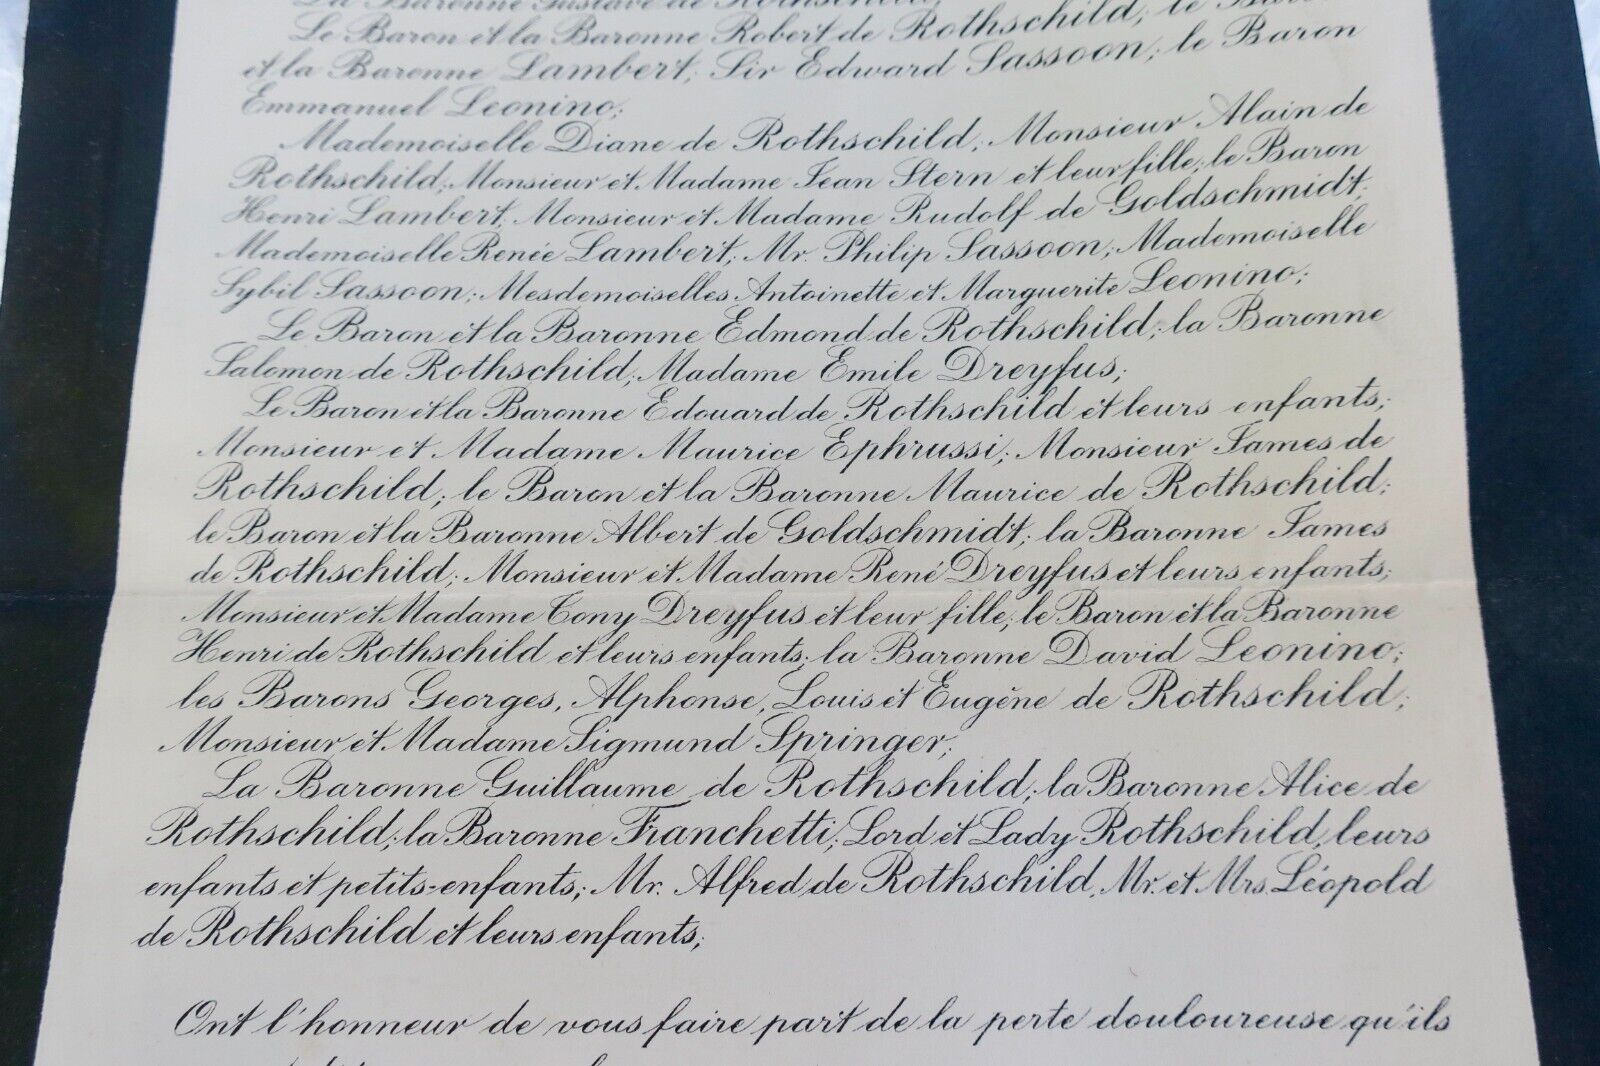 La Baronne Gustave de Rothschild;
Le Baron et la Baronne Robert de Rothschild; le Baron
et la Baronne Lambert; Sir Edward Sassoon; le Baron
Emmanuel Leonino;
Mademoiselle Diane de Rothschild; Monsieur Alain de
Rothschild; Monsieur et Madame Jean Stern et leur fille; le Baron
Henri Lambert; Monsieur et Madame Rudolf de Goldschmidt;
Mademoiselle Renée Lambert; Mr. Philip Sassoon; Mademoiselle
Sybil Sassoon; Mesdemoiselles Antoinette et Marguerite Leonino;
Le Baron et la Baronne Edmond de Rothschild; la Baronne
Salomon de Rothschild; Madame Emile Dreyfus;
Le Baron et la Baronne Edouard de Rothschild et leurs enfants;
Monsieur et Madame Maurice Ephrussi; Monsieur James de
Rothschild; le Baron et la Baronne Maurice de Rothschild;
le Baron et la Baronne Albert de Goldschmidt; la Baronne James
de Rothschild; Monsieur et Madame René Dreyfus et leurs enfants;
Monsieur et Madame Tony Dreyfus et leur fille; le Baron et la Baronne
Henri de Rothschild et leurs enfants; la Baronne David Leonino;
les Barons Georges, Alphonse, Louis et Eugène de Rothschild;
Monsieur et Madame Sigmund Springer;
La Baronne Guillaume de Rothschild; la Baronne Alice de
Rothschild; la Baronne Franchetti; Lord et Lady Rothschild, leurs
enfants et petits-enfants; Mr. Alfred de Rothschild, Mr. et Mrs. Léopold
de Rothschild et leurs enfants;
Ont l'honneur de vous faire part de la perte douloureuse qu'ils